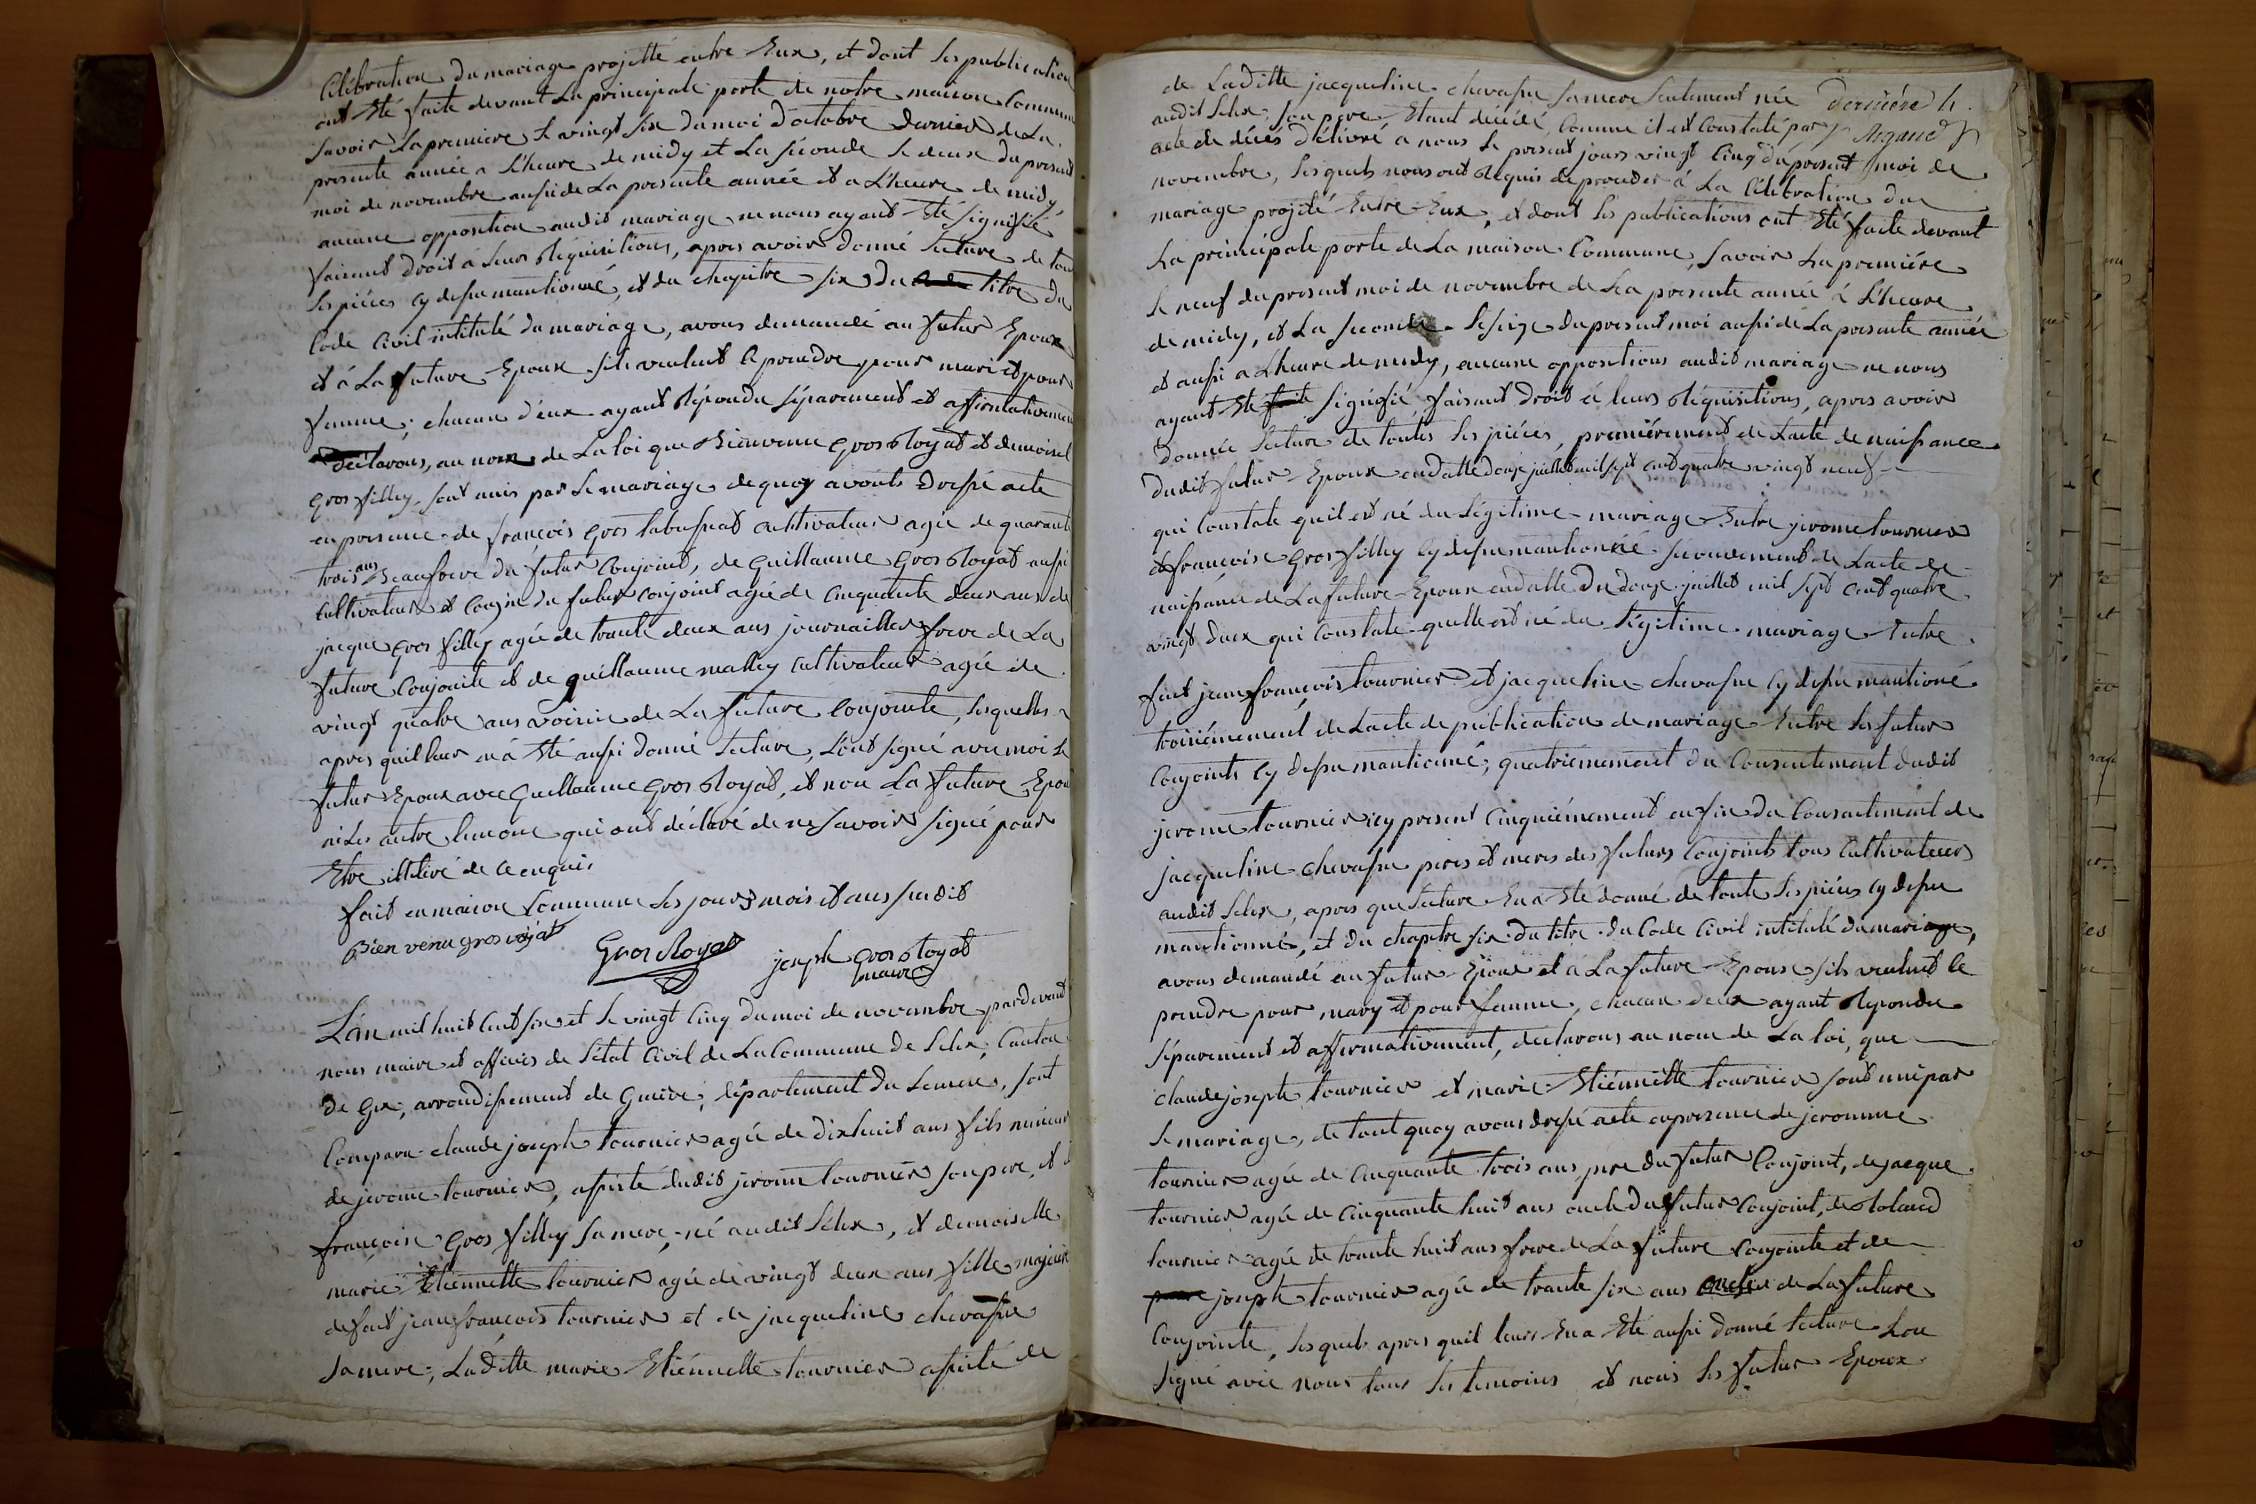 Célébration du mariage projetté entre Eux, et dont les publication
ont Eté faite devant La principale porte de notre maison Commun
savoir La premiere le vingt six du moi d'octobre dernier de La
presente année a L'heure de midy et La seconde le deux du present
moi de novembre aussi de La presente année et a L'heure de midy
aucune opposition audit mariage ne nous ayant Eté signifié
faisant droit á leurs réquisitions, apres avoir donné lecture de tou
les piéces cy dessu mantionné, et du chapitre six du titre du
Code Civil intitulé du mariage, avons demandé au futur Epoux
et á La future Epouse s'ils veulent se prendre pour mari et pour
femme; chacun d'eux ayant répondu séparement et affirmativemen
déclarons, au nom de La loi que Bienvenu gros Royat et demoisel
gros filley sont unis par le mariage de quoy avons dressé acte
en presence de francois gros cultivateur agée de quarante
trois ans Beaufrere du futur Conjoint, de guillaume gros Royat aussi
cultivateur et cousin du futur conjoint agée de cinquante deux ans de
jacque gros filley agée de trante deux ans journaillier frere de La
future Conjointe et de guillaume malley cultivateur agée de
vingt quatre ans voisin de La future Conjointe, lesquelles
apres quil leur en á Eté aussi donné lecture, L'ont signé avec moi le
futur Epoux avec Guillaume gros Royat, et non La future Epou
ni Les autre temoin qui ont déclaré de ne savoir signé pour
Etre illitéré de ce enquis
fait en maison Commune les jours mois et ans susdit
Bien venu gros royat
Gros Royat
joseph gros Royat
maire
L'an mil huit Cent six et le vingt Cinq du moi de novembre pardevant
nous maire et officier de l'état Civil de La Commune de Lelex, Canton
de Gex, arrondissement de Genève, département du Leman, sont
Comparu claude joseph tournier agée de dixhuit ans fils mineur
de jerome tournier, assisté dudit jerome tournier son pere, et
françoise gros filley sa mere, né audit Lelex, et demoiselle
marie Etiennette tournier agée de vingt deux ans fille majeur
defait jean francois tournier et de jacqueline chevassu
sa mere; Laditte marie Etiénnette tournier assisté de
de Laditte jacqueline chevassu sa mere seulement née
audit Lelex; son pere Etant décédé, Comme il est Constaté par
acte de décés délivré a nous le present jours vingt Cinq du present moi de
novembre, lesquels nous ont requis de proceder á La Célébration du
mariage projeté Entre Eux, et dont les publications ont Eté faite devant
La principale porte de La maison Commune, savoir La premiére
le neuf du present moi de novembre de La presente année á L'heure
de midy, et La seconde le seize du present moi aussi de La presente année
et aussi a L'heure de midy, aucune oppositions audit mariage ne nous
ayant Eté signifié, faisant droit á leurs réquisitions, apres avoir
donnée lecture de toutes les piéces, premiérement de L'acte de naissance
dudit futur Epoux en datte douze juillet mil sept cent quatre vingt neuf
qui Constate quil est né du légitime mariage Entre jerome tournier
et françoise gros filley cy dessu mantionné secondement de L'acte de
naissance de La future Epouse en datte du douze juillet mil sept Cent quatre
vingt deux qui Constate quelle est né du légitime mariage Entre
fait jean françois tournier et jacqueline chevassu cy dessu mantioné
troisiémement de L'acte de publication de mariage Entre les futur
Conjoints cy dessu mantionné; quatriémement du Consentement dudit
jerome tournier icy present Cinquiémement enfin du Consentiment de
jacqueline chevassu péres et meres des futurs Conjoints tous Cultivateurs
audit Lelex, apres que lecture En a Eté donné de toute les piéces cy dessu
mantionné, et du chapitre six du titre du Code Civil intitulé du mariage,
avons demandé au futur Epoux et á La future Epouse s'ils veulent se
prendre pour mary et pour femme, chacun deux ayant répondu
séparement et affirmativement, declarons au nom de La loi, que
claude joseph tournier et marie Etiénnette tournier sont uni par
le mariage, de tout quoy avons dressé acte en presence de jeromme
tournier agée de cinquante trois ans, pere du futur Conjoint, de jacque
tournier agée de Cinquante huit ans oncle du futur Conjoint, de Roland
tournier agée de trante huit ans frere de La future Conjointe et de
joseph tournier agée de trante six ans de La future
Conjointe, lesquels apres quil leurs En a Eté aussi donné lecture L'on
signé avec nous tous les temoins et nous les futur Epoux